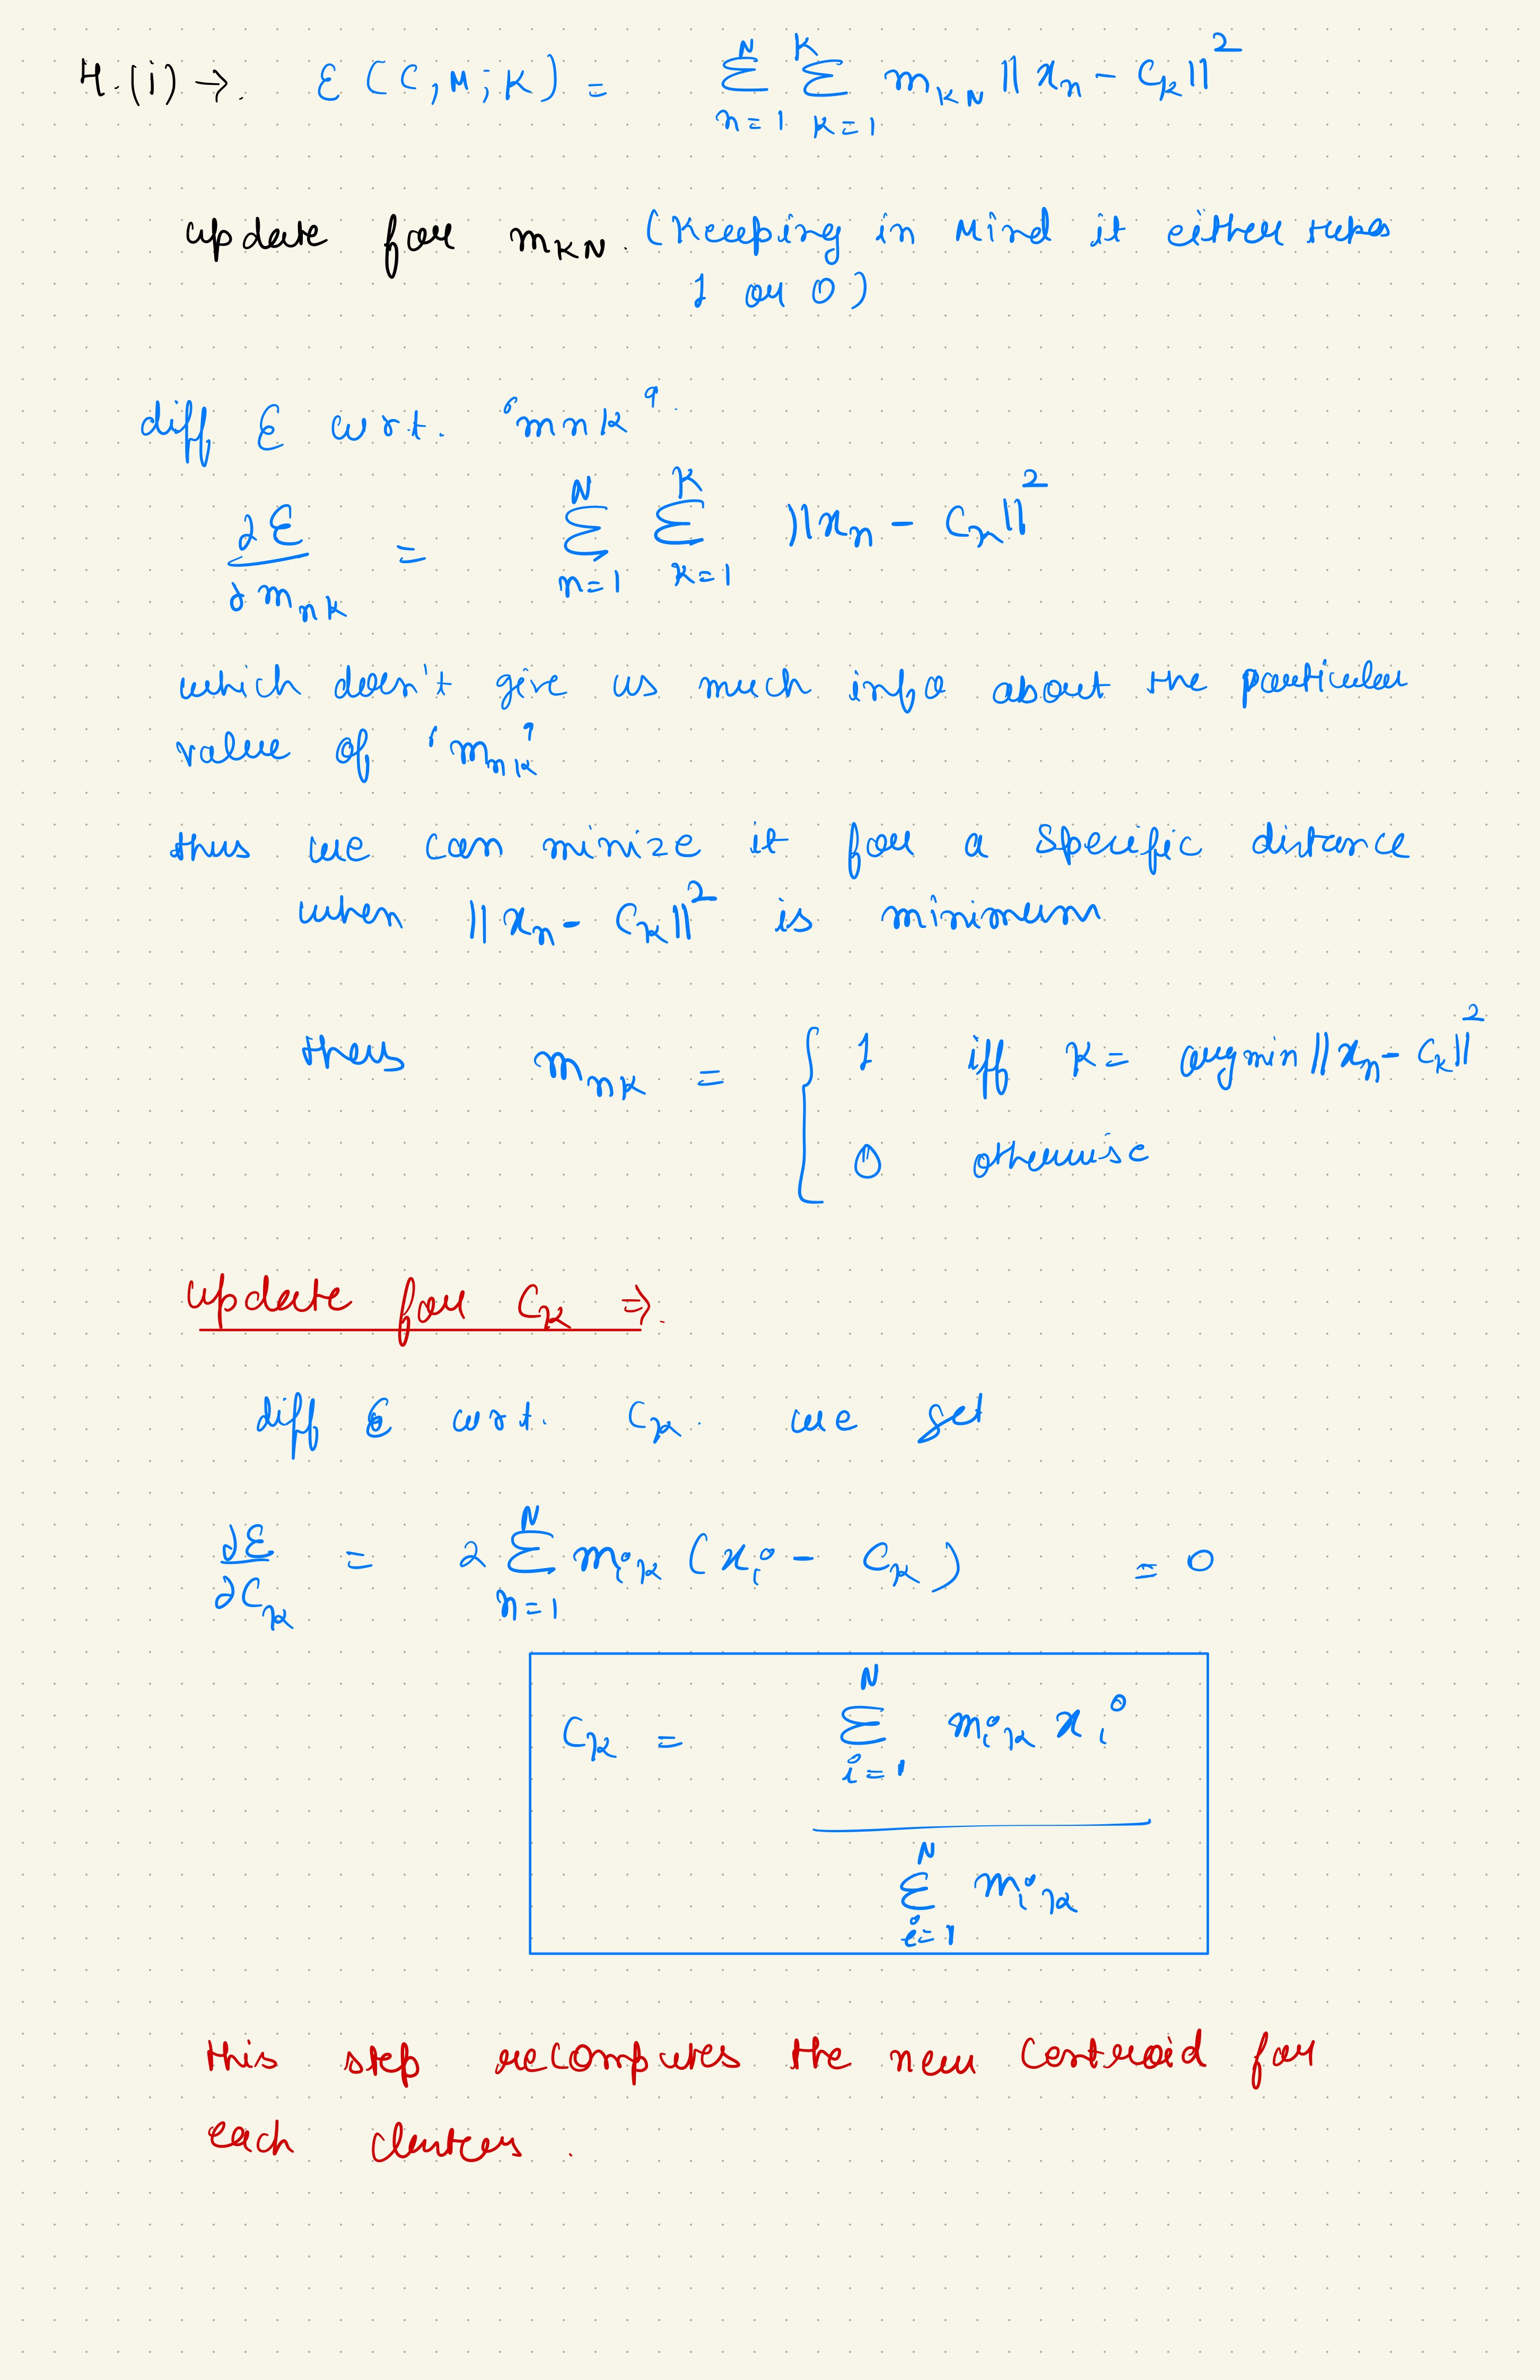 4.(i) → ε(C,M;K) = Σ_{n=1}^{N} Σ_{k=1}^{K} m_{KN} ||x_n - C_k||²
update for m_{KN}. (Keeping in Mind it either takes
1 or 0)
diff ε wrt. 'mnk'.
∂ε/∂m_{nk} = Σ_{n=1}^{N} Σ_{k=1}^{K} ||x_n - C_k||²
which doesn't give us much info about the particular
value of 'm_{nk}'
thus we can minize it for a specific distance
when ||x_n - C_k||² is minimum
thus m_{nk} = { 1 iff k = argmin ||x_n - C_k||²
0 otherwise
update for C_k ⇒.
diff ε wrt. C_k. we get
∂ε/∂C_k = 2 Σ_{n=1}^{N} m_{ik} (x_i - C_k) = 0
C_k = Σ_{i=1}^{N} m_{ik} x_i / Σ_{i=1}^{N} m_{ik}
this step recomputes the new centroid for
each clusters.